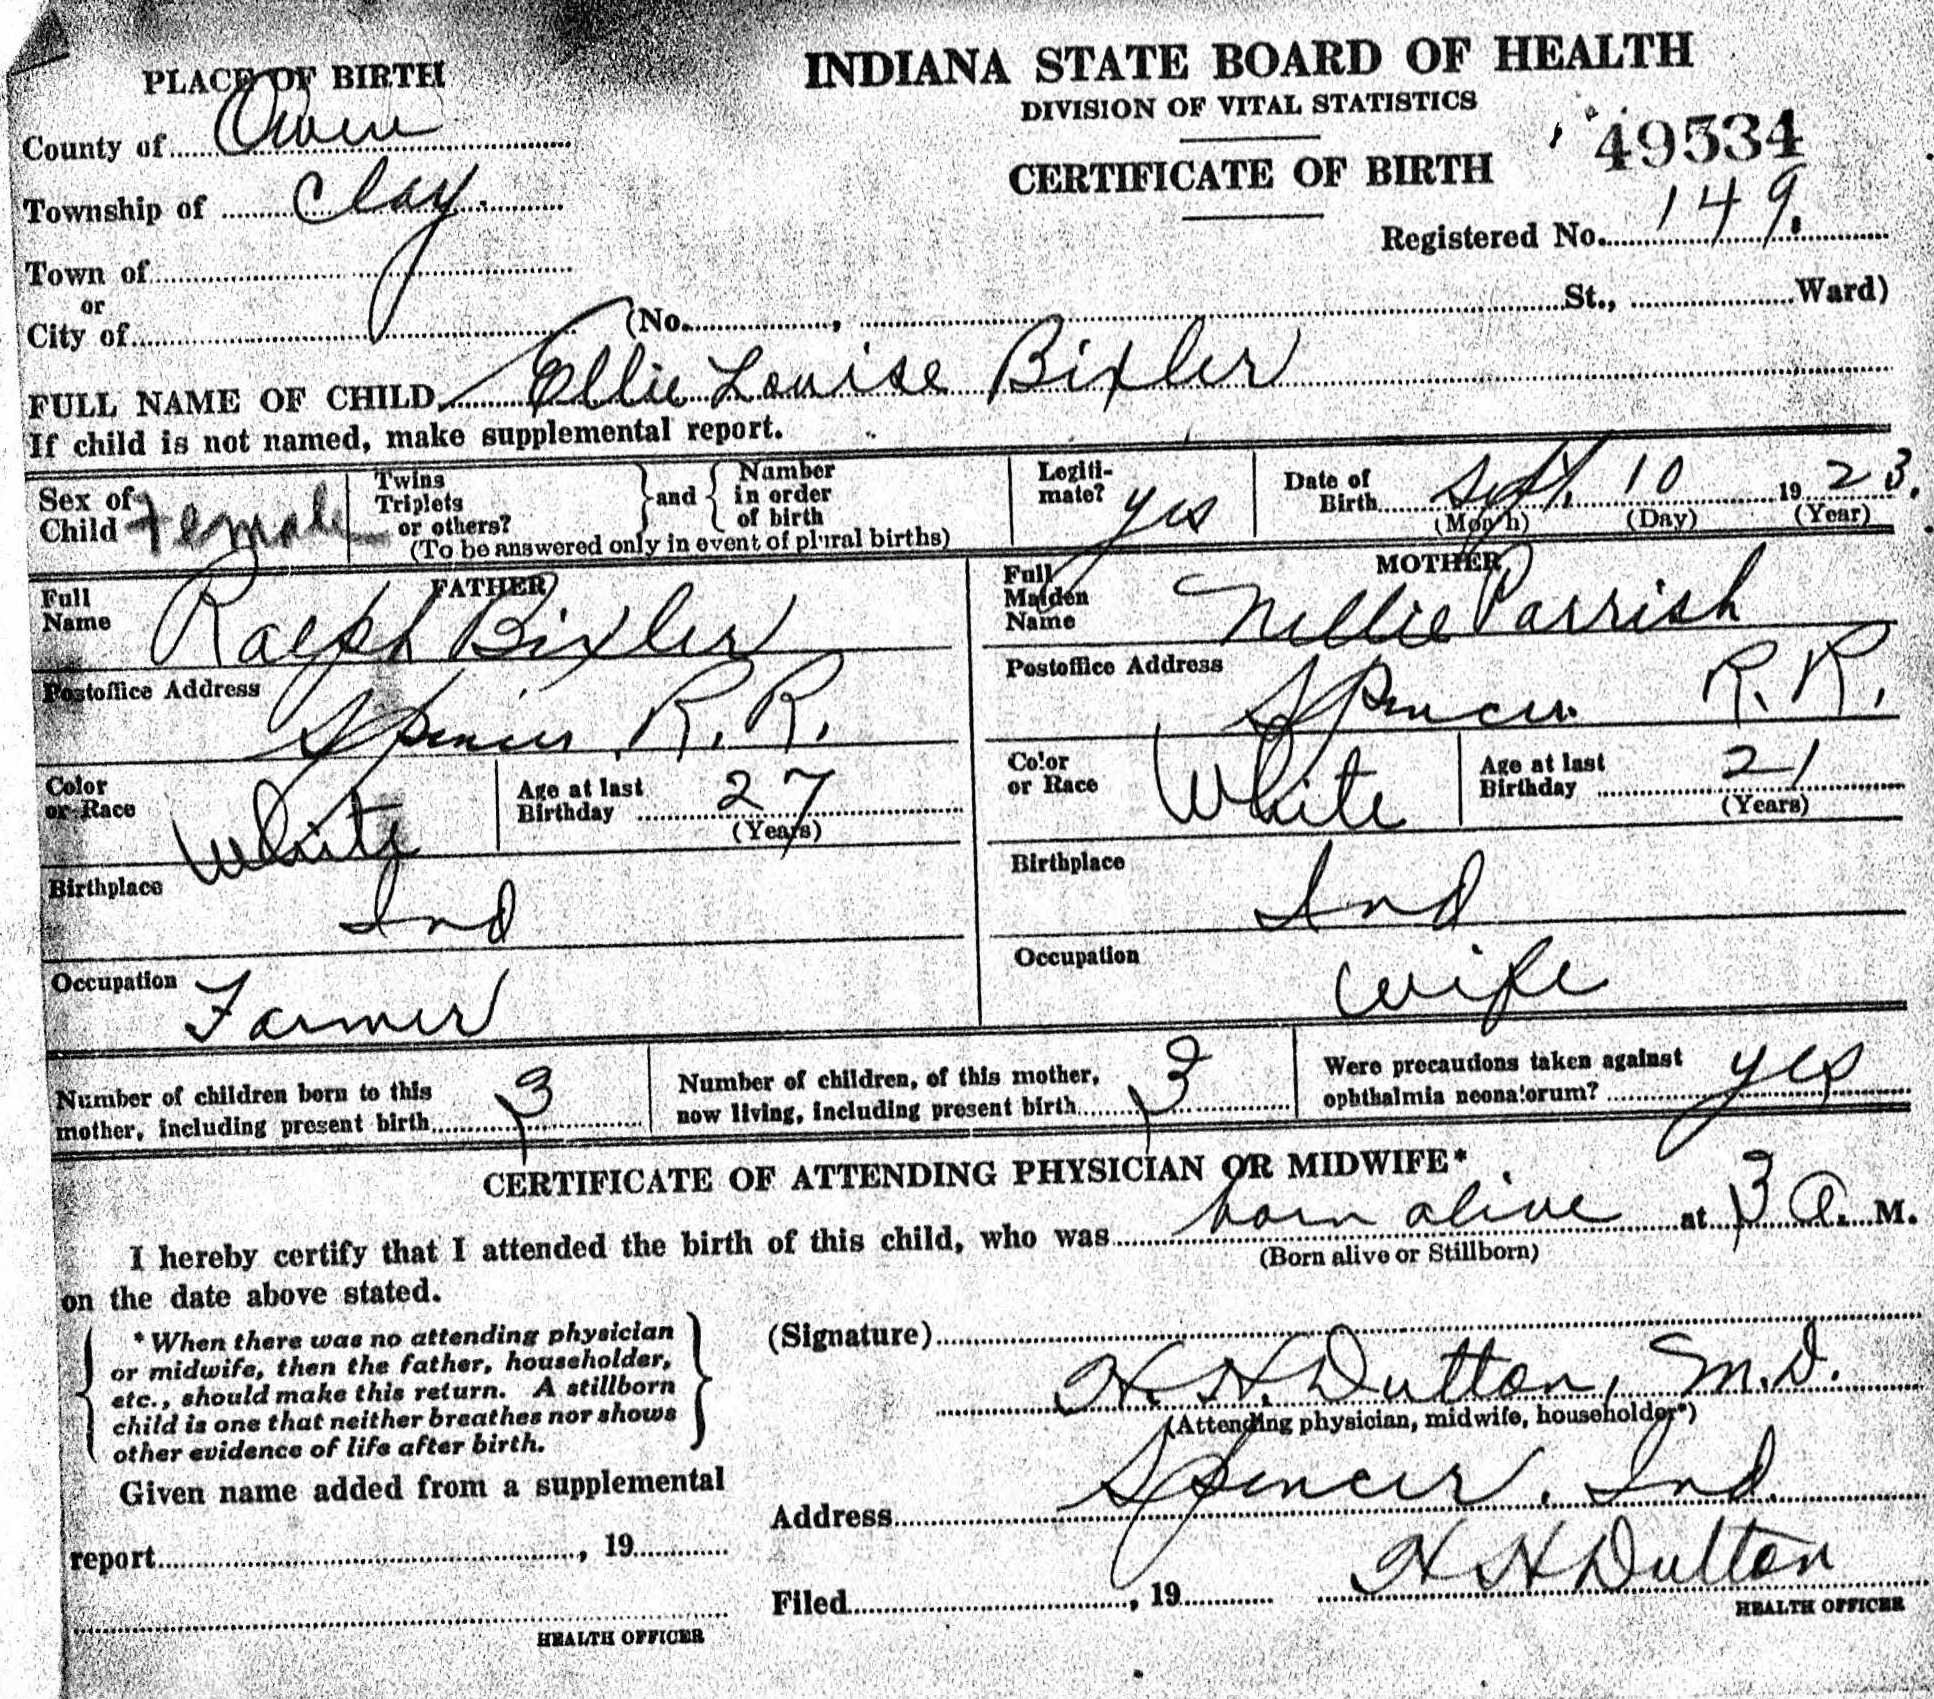 PLACE OF BIRTH
INDIANA STATE BOARD OF HEALTH
DIVISION OF VITAL STATISTICS
County of Owen
49534
CERTIFICATE OF BIRTH
Township of Clay.
Registered No. 149.
Town of
or
City of (No. , St., Ward)
FULL NAME OF CHILD Ellie Louise Bixler
If child is not named, make supplemental report.
Sex of Child Female
Twins Triplets or others? } and { Number in order of birth
(To be answered only in event of plural births)
Legiti-mate? yes
Date of Birth Sept. 10 1923.
(Month) (Day) (Year)
FATHER
Full Name Ralph Bixler
Postoffice Address
Spencer R. R.
Color or Race White
Age at last Birthday 27
(Years)
Birthplace
Ind
Occupation Farmer
MOTHER
Full Maiden Name Nellie Parrish
Postoffice Address
Spencer R. R.
Color or Race White
Age at last Birthday 21
(Years)
Birthplace
Ind
Occupation
Wife
Number of children born to this
mother, including present birth 3
Number of children, of this mother,
now living, including present birth 3
Were precautions taken against
ophthalmia neonatorum? yes
CERTIFICATE OF ATTENDING PHYSICIAN OR MIDWIFE*
I hereby certify that I attended the birth of this child, who was born alive at 3 a. M.
(Born alive or Stillborn)
on the date above stated.
*When there was no attending physician
or midwife, then the father, householder,
etc., should make this return. A stillborn
child is one that neither breathes nor shows
other evidence of life after birth.
(Signature)
H. H. Dutton, M.D.
(Attending physician, midwife, householder*)
Given name added from a supplemental
report , 19
HEALTH OFFICER
Address Spencer, Ind.
Filed , 19 H H Dutton
HEALTH OFFICER